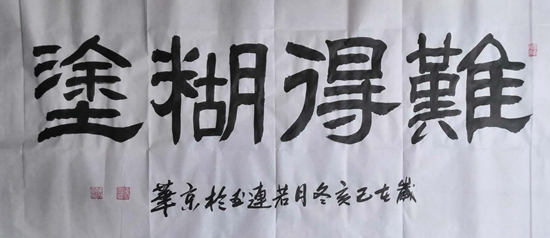 難得糊塗
歲在己亥冬月若連玉於京華